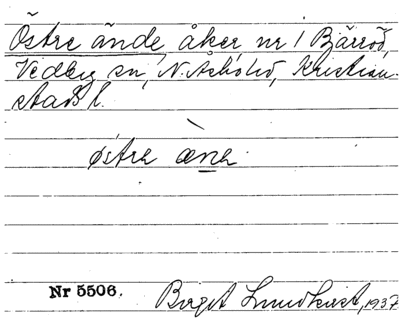 Östre ände, åker, nr 1 Bjärröd,
Vedby sn, N. Åsbo hd, Kristian-
stads l.
østrə ænə
Nr 5506. Birgit Lundkvist, 1937